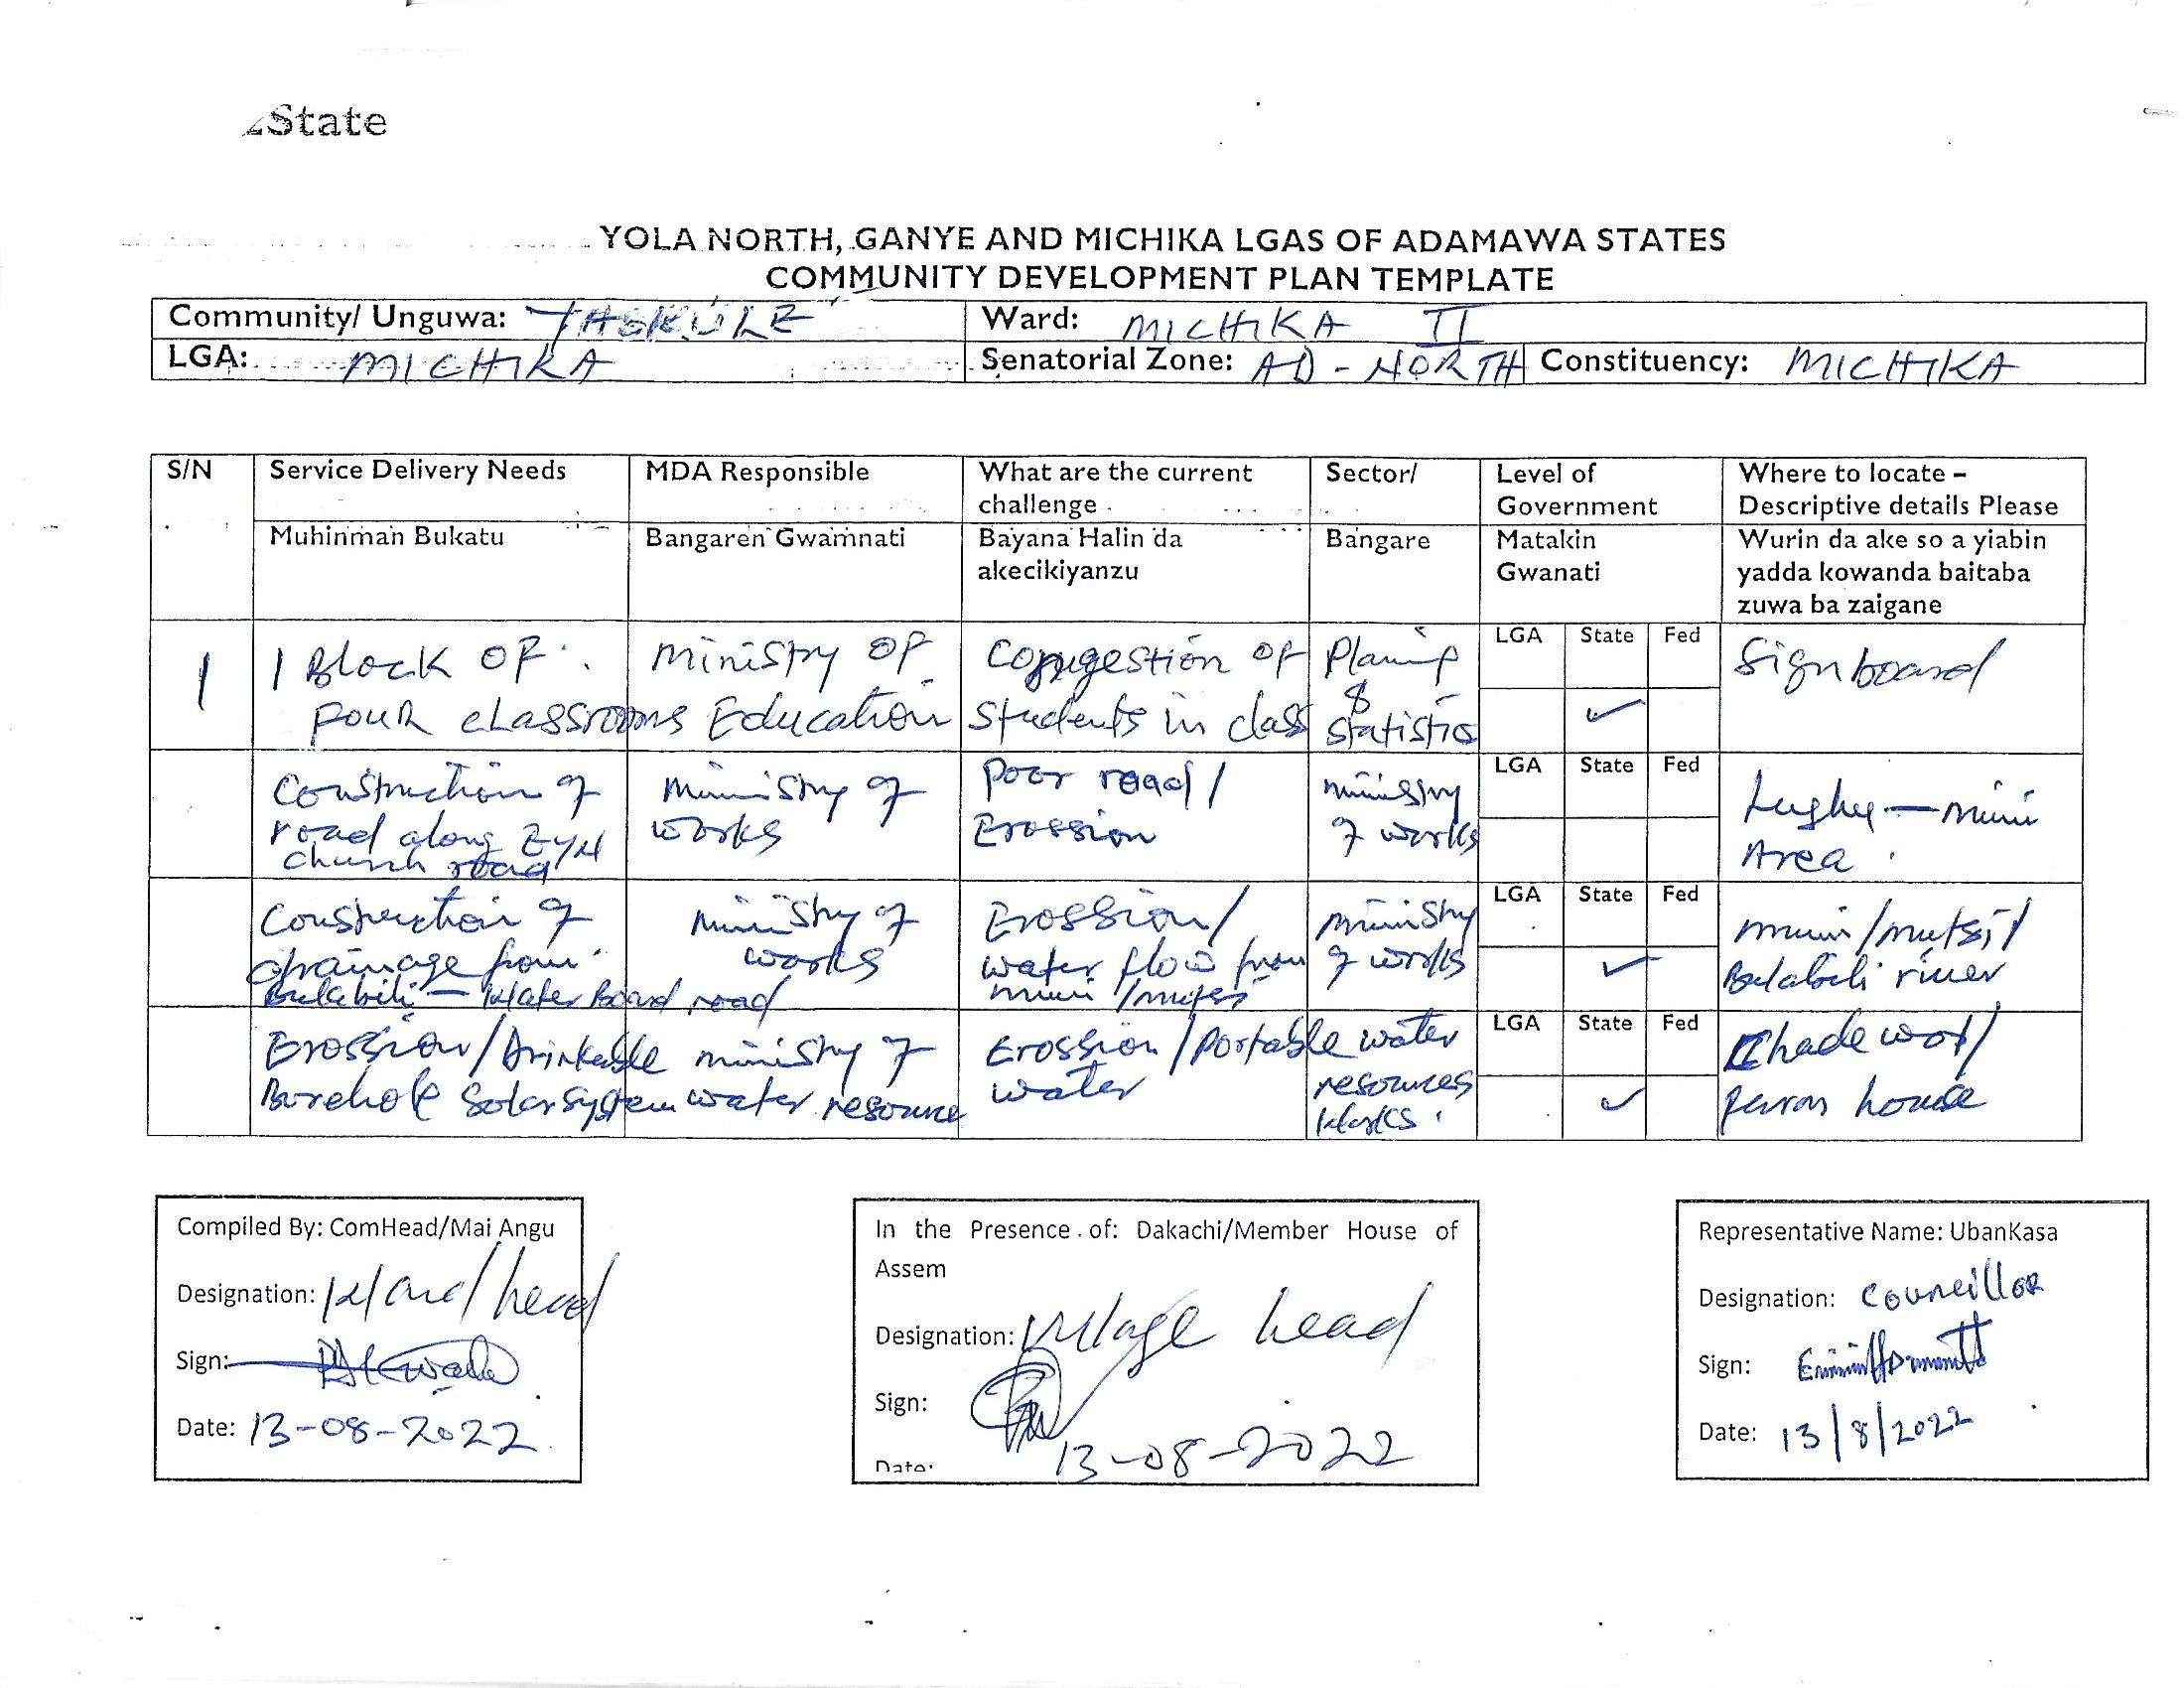 State
YOLA NORTH, GANYE AND MICHIKA LGAS OF ADAMAWA STATES
COMMUNITY DEVELOPMENT PLAN TEMPLATE
Community/ Unguwa:
Ward: MICHIKA II
LGA: MICHIKA
Senatorial Zone: AD - NORTH
Constituency: MICHIKA
S/N
Service Delivery Needs
MDA Responsible
What are the current
challenge
Sector/
Level of
Government
Where to locate –
Descriptive details Please
Muhinman Bukatu
Bangaren Gwamnati
Bayana Halin da
akecikiyanzu
Bangare
Matakin
Gwanati
Wurin da ake so a yiabin
yadda kowanda baitaba
zuwa ba zaigane
1
1 Block OF
FOUR cLassrooms
Ministry OF
Education
Congestion OF
Students in class
&
statistics
LGA State Fed
✓
Signboard
Construction of
road along EYN
church road
ministry of
works
Poor road/
Erossion
ministry
of works
LGA State Fed
Area
Construction of
drainage from
Bulabili – Water Board road
ministry of
works
Erossion/
water flow from
ministry
of works
LGA State Fed
✓
river
Erossion/Drinkable
Borehole Solar System
ministry of
water resource
Erossion/Portable
water
water
resources
LGA State Fed
✓
house
Compiled By: ComHead/Mai Angu
Designation: Ward head
Sign:
Date: 13-08-2022
In the Presence of: Dakachi/Member House of
Assem
Designation: Village head
Sign:
Date: 13-08-2022
Representative Name: UbanKasa
Designation: Councillor
Sign:
Date: 13/8/2022